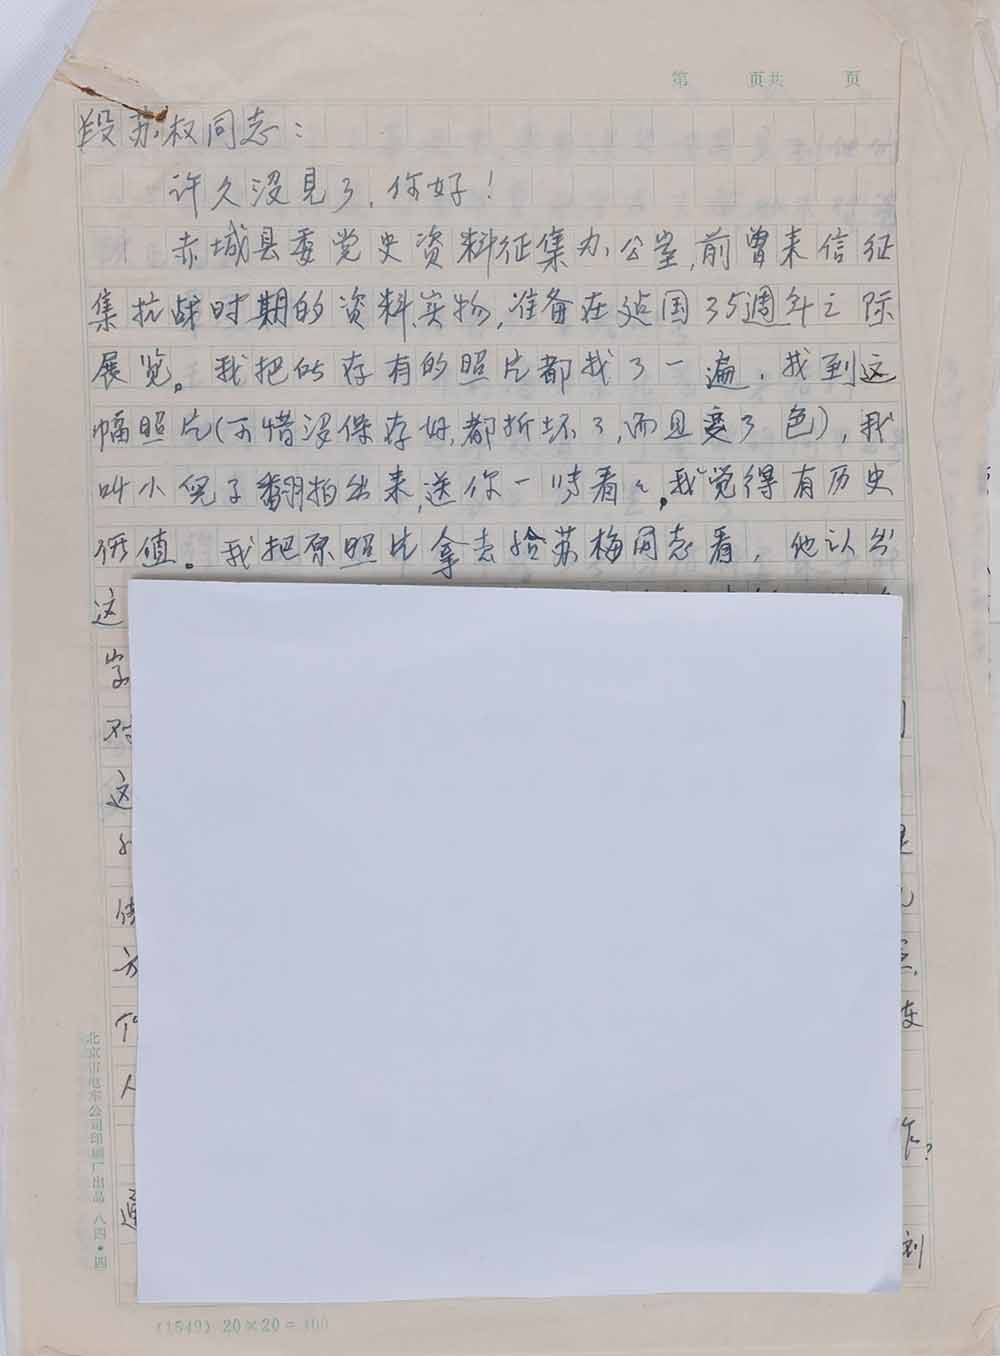 第　　页共　　页
段苏权同志：
许久没見了，你好！
赤城县委党史资料征集办公室，前曾来信征
集抗战时期的资料、实物，准备在建国35週年之际
展览。我把所存有的照片都找了一遍，找到这
幅照片（可惜没保存好，都折坏了，而且变了色），我
叫小兒子翻拍出来，送你一帧看看，我觉得有历史
价值。我把原照片拿去给苏梅同志看，他认出
这
字
对
这
是
使
方
个
人 作？
通
到
北京市电车公司印刷厂出品 八四·四
(1549) 20×20=400